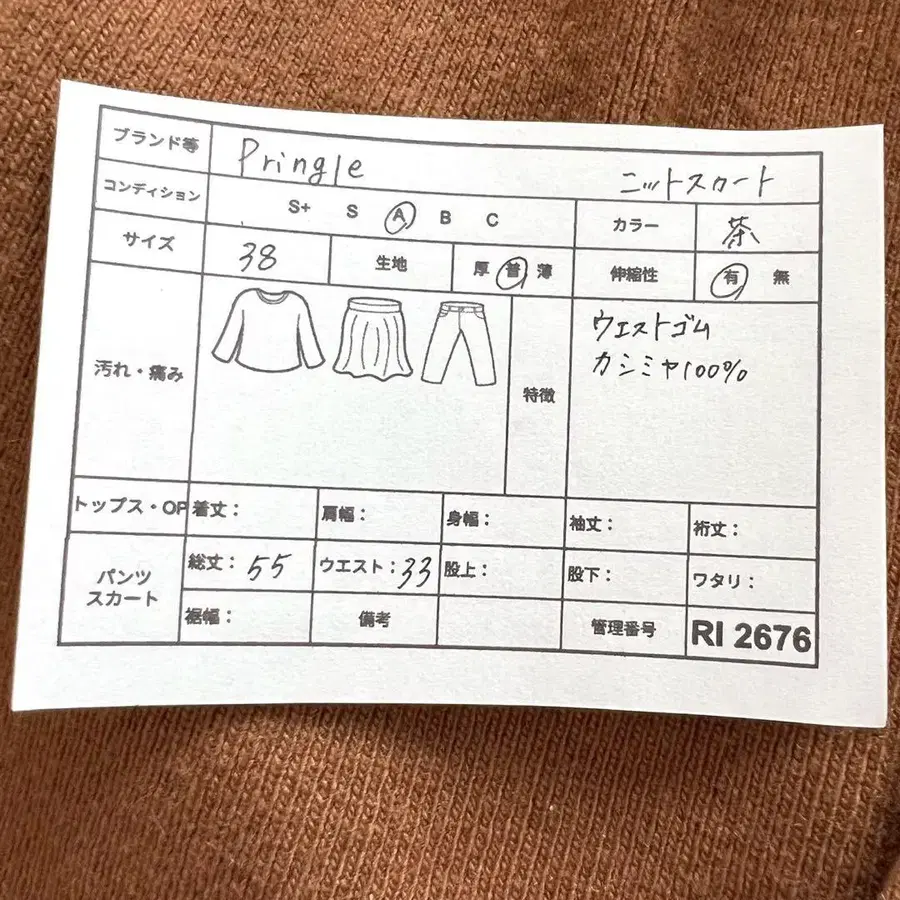 ブランド等 Pringle ニットスカート
コンディション S+ S A B C カラー 茶
サイズ 38 生地 厚 普 薄 伸縮性 有 無
汚れ・痛み 特徴 ウエストゴム
カシミヤ100%
トップス・OP 着丈: 肩幅: 身幅: 袖丈: 裄丈:
パンツ
スカート
総丈: 55 ウエスト: 33 股上: 股下: ワタリ:
裾幅: 備考 管理番号 RI 2676